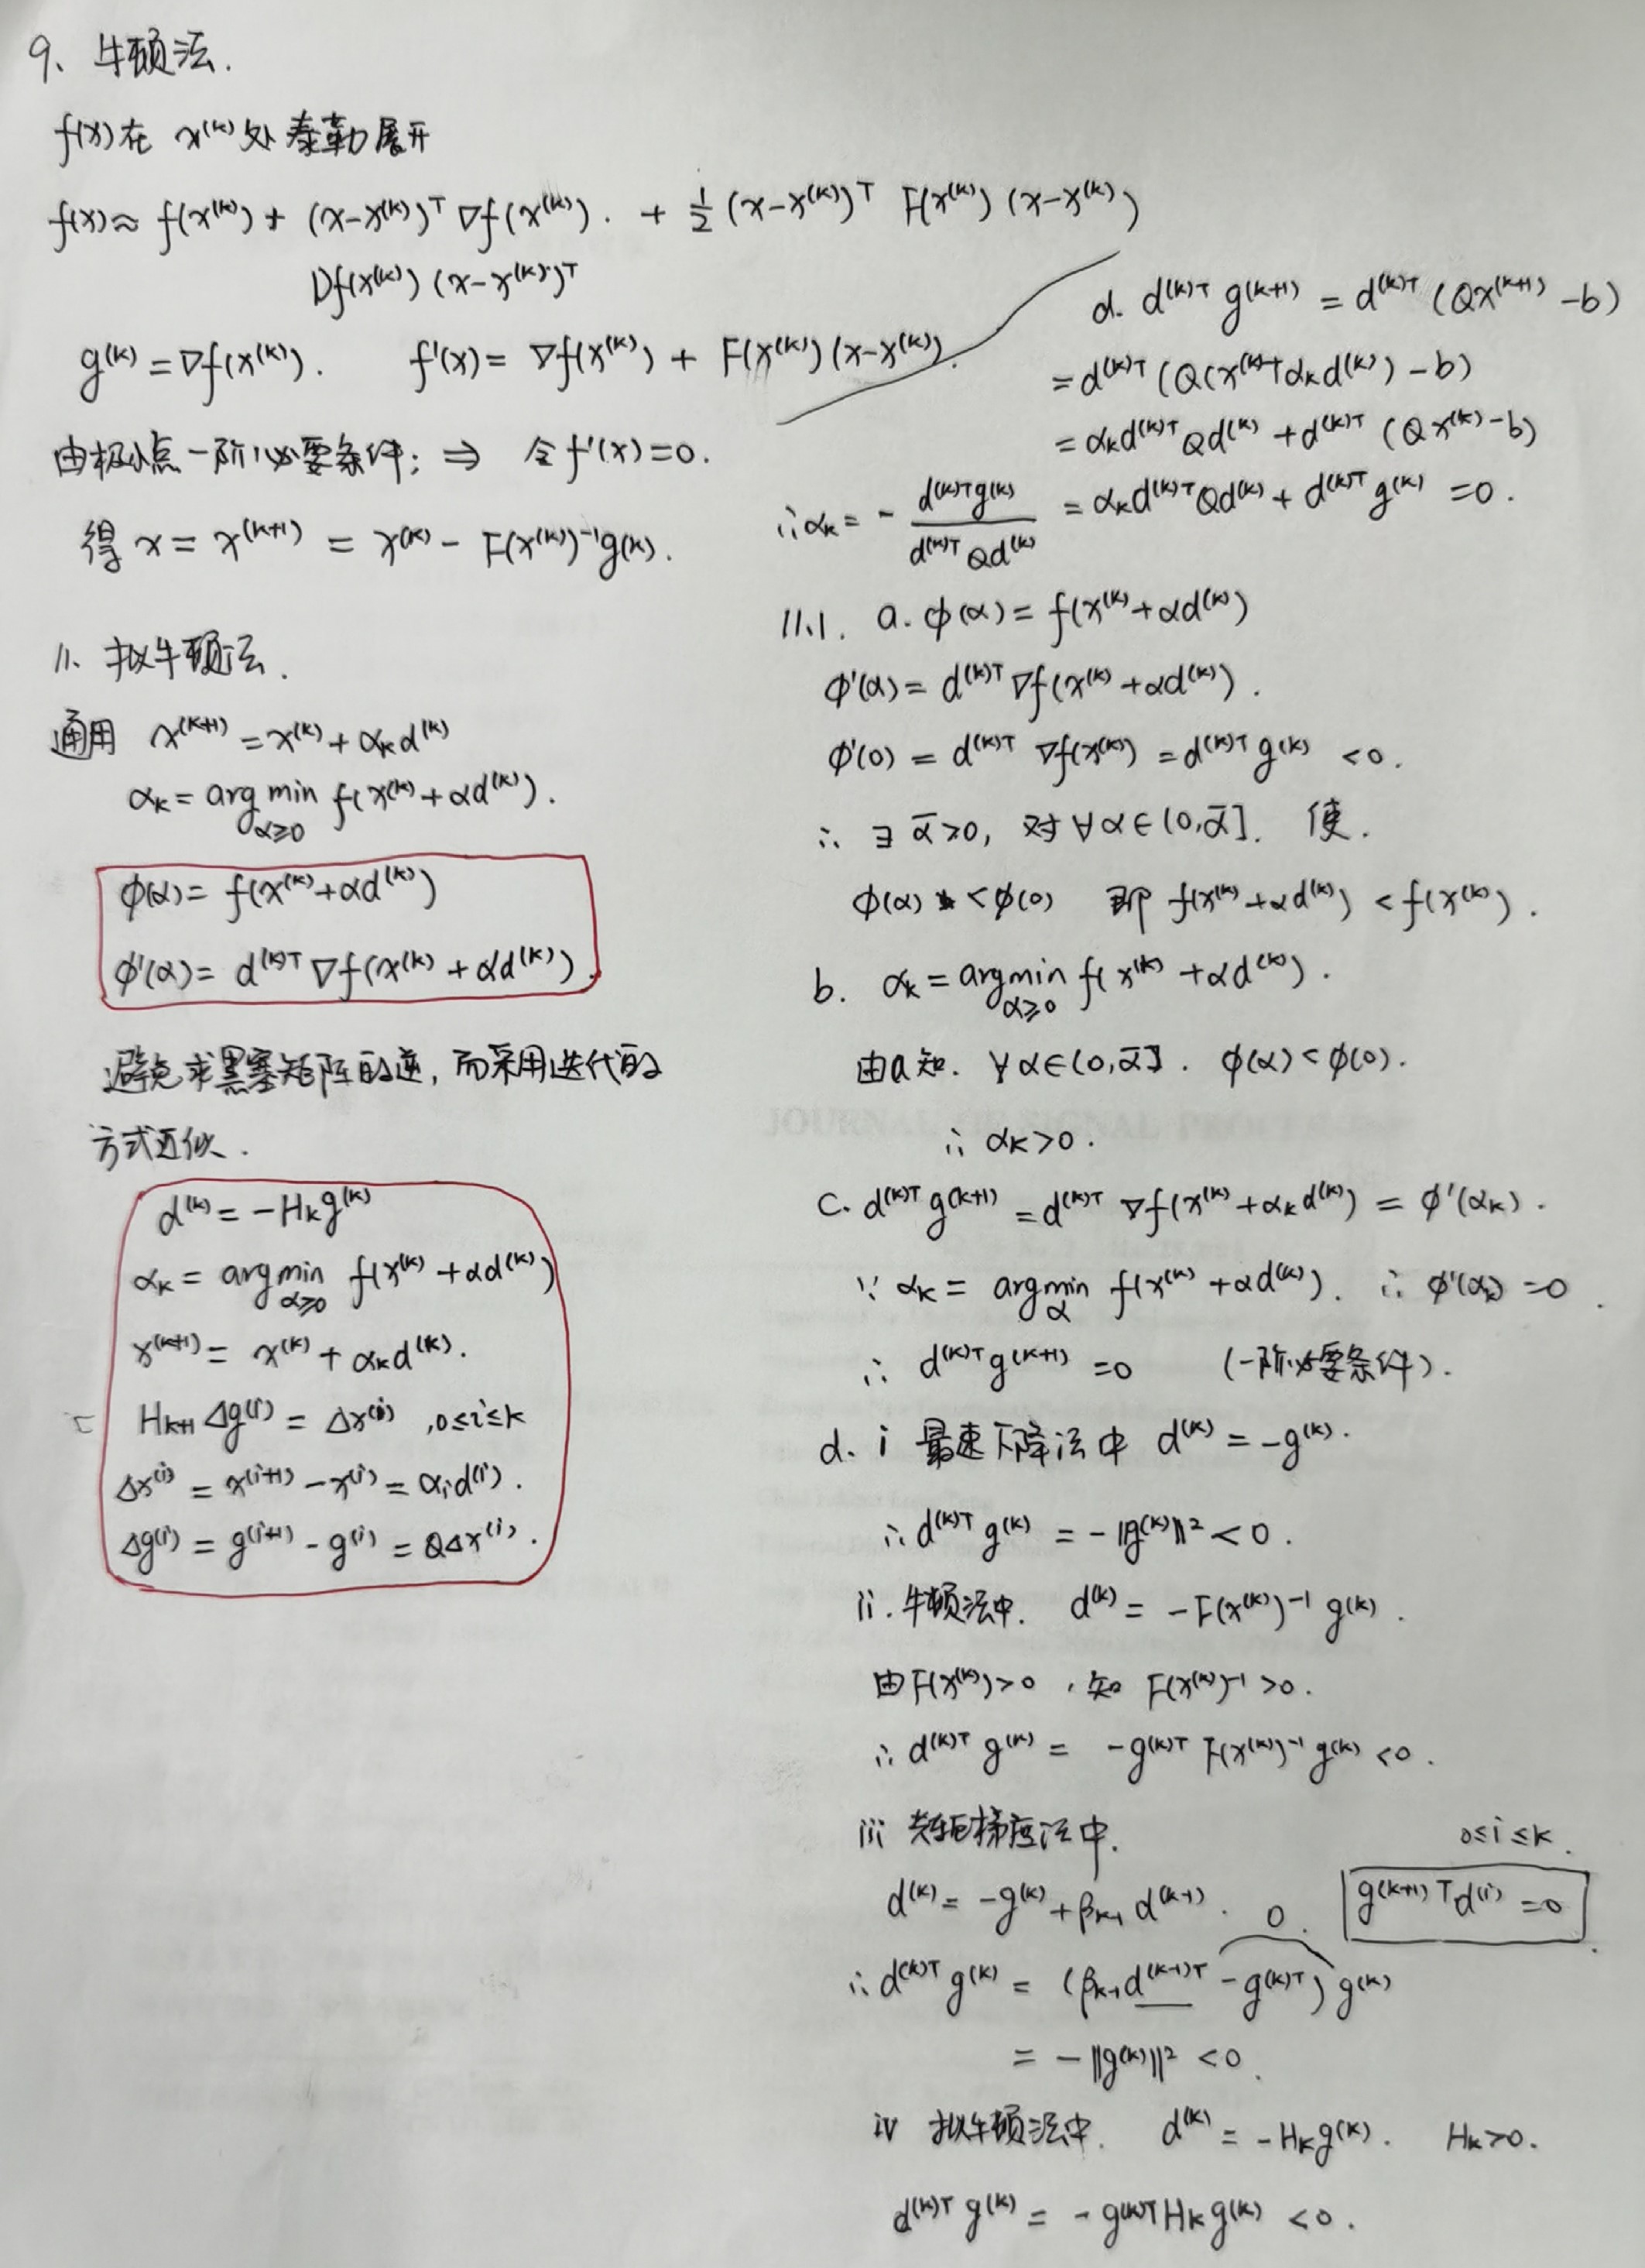 9、牛顿法.
f(x)在 x^(k)处泰勒展开
f(x)≈ f(x^(k)) + (x-x^(k))^T ∇f(x^(k)). + 1/2 (x-x^(k))^T F(x^(k)) (x-x^(k))
Df(x^(k)) (x-x^(k))^T
g^(k) = ∇f(x^(k)). f'(x) = ∇f(x^(k)) + F(x^(k)) (x-x^(k)).
由极小点一阶必要条件; ⇒ 令 f'(x)=0.
得 x = x^(k+1) = x^(k) - F(x^(k))^-1 g^(k).
11、拟牛顿法.
通用 x^(k+1) = x^(k) + α_k d^(k)
α_k = arg min f(x^(k) + αd^(k)).
α≥0
ϕ(α) = f(x^(k) + αd^(k))
ϕ'(α) = d^(k)T ∇f(x^(k) + αd^(k)).
避免求黑塞矩阵的逆, 而采用迭代的
方式近似.
d^(k) = -H_k g^(k)
α_k = arg min f(x^(k) + αd^(k))
α≥0
x^(k+1) = x^(k) + α_k d^(k).
H_k+1 Δg^(i) = Δx^(i) , 0≤i≤k
Δx^(i) = x^(i+1) - x^(i) = α_i d^(i).
Δg^(i) = g^(i+1) - g^(i) = QΔx^(i).
d. d^(k)T g^(k+1) = d^(k)T (Qx^(k+1) - b)
= d^(k)T (Q(x^(k)+α_k d^(k)) - b)
= α_k d^(k)T Qd^(k) + d^(k)T (Qx^(k) - b)
∴ α_k = - d^(k)T g^(k) / d^(k)T Qd^(k) = α_k d^(k)T Qd^(k) + d^(k)T g^(k) = 0.
11.1. a. ϕ(α) = f(x^(k) + αd^(k))
ϕ'(α) = d^(k)T ∇f(x^(k) + αd^(k)).
ϕ'(0) = d^(k)T ∇f(x^(k)) = d^(k)T g^(k) < 0.
∴ ∃ ᾱ>0, 对 ∀α∈(0,ᾱ]. 使.
ϕ(α) < ϕ(0) 即 f(x^(k) + αd^(k)) < f(x^(k)).
b. α_k = arg min f(x^(k) + αd^(k)).
α≥0
由a知. ∀α∈(0,ᾱ]. ϕ(α) < ϕ(0).
∴ α_k > 0.
C. d^(k)T g^(k+1) = d^(k)T ∇f(x^(k) + α_k d^(k)) = ϕ'(α_k).
∵ α_k = arg min f(x^(k) + αd^(k)). ∴ ϕ'(α_k) = 0.
α
∴ d^(k)T g^(k+1) = 0 (一阶必要条件).
d. i 最速下降法中 d^(k) = -g^(k).
∴ d^(k)T g^(k) = -‖g^(k)‖² < 0.
ii. 牛顿法中. d^(k) = -F(x^(k))^-1 g^(k).
由F(x^(k))>0 , 知 F(x^(k))^-1 >0.
∴ d^(k)T g^(k) = -g^(k)T F(x^(k))^-1 g^(k) < 0.
iii 共轭梯度法中.
0≤i≤k.
d^(k) = -g^(k) + β_k-1 d^(k-1). 0. g^(k+1)T d^(i) = 0
∴ d^(k)T g^(k) = (β_k-1 d^(k-1)T - g^(k)T) g^(k)
= -‖g^(k)‖² < 0.
iv 拟牛顿法中. d^(k) = -H_k g^(k). H_k>0.
d^(k)T g^(k) = -g^(k)T H_k g^(k) < 0.